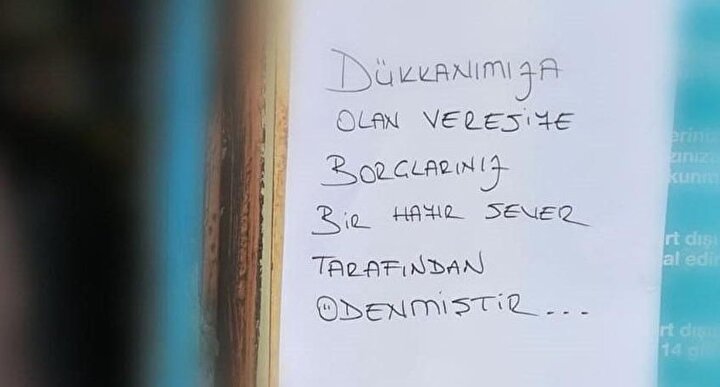 DÜKKANIMIZA
OLAN VERESİYE
BORÇLARINIZ
BİR HAYIR SEVER
TARAFINDAN
ÖDENMİŞTİR...
erinc
zınız
kunm
rt dışı
al edin
rt dışı
14 gü